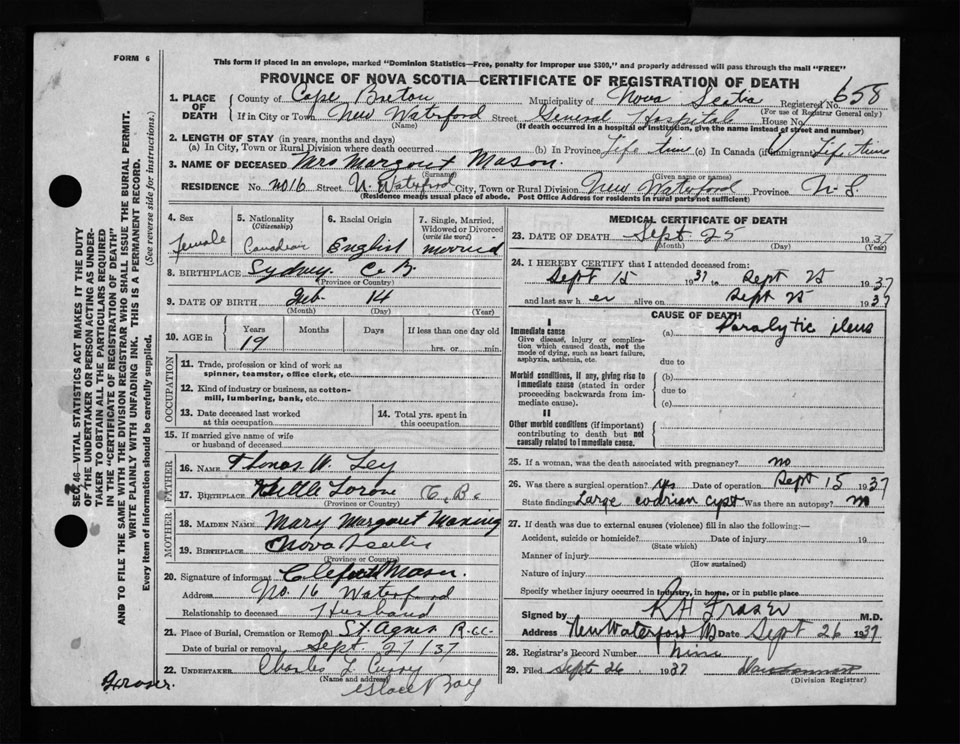 FORM 6
This form if placed in an envelope, marked "Dominion Statistics—Free, penalty for improper use $300," and properly addressed will pass through the mail "FREE"
PROVINCE OF NOVA SCOTIA—CERTIFICATE OF REGISTRATION OF DEATH
1. PLACE OF DEATH
County of Cape Breton Municipality of Nova Scotia Registered No. 658
(For use of Registrar General only)
If in City or Town New Waterford Street General Hospital House No.
(Name) (If death occurred in a hospital or institution, give the name instead of street and number)
2. LENGTH OF STAY (in years, months and days)
(a) In City, Town or Rural Division where death occurred (b) In Province Life time (c) In Canada (if immigrant) Life time
3. NAME OF DECEASED Mrs Margaret Mason.
(Surname) (Given name or names)
RESIDENCE No no 16 Street N. Waterford City, Town or Rural Division New Waterford Province N. S.
(Residence means usual place of abode. Post Office Address for residents in rural parts not sufficient)
4. Sex
female
5. Nationality
(Citizenship)
Canadian
6. Racial Origin
English
7. Single, Married, Widowed or Divorced
(write the word)
married
8. BIRTHPLACE Sydney C. B.
(Province or Country)
9. DATE OF BIRTH Feb. 14
(Month) (Day) (Year)
10. AGE in
Years Months Days If less than one day old
19 hrs. or min.
OCCUPATION
11. Trade, profession or kind of work as
spinner, teamster, office clerk, etc.
12. Kind of industry or business, as cotton-
mill, lumbering, bank, etc.
13. Date deceased last worked
at this occupation
14. Total yrs. spent in
this occupation
15. If married give name of wife
or husband of deceased
FATHER
16. NAME Thomas W. Ley
17. BIRTHPLACE Little Lorane C. B.
(Province or Country)
MOTHER
18. MAIDEN NAME Mary Margaret
19. BIRTHPLACE Nova Scotia
(Province or Country)
20. Signature of informant Mason.
Address No. 16 Waterford
Relationship to deceased Husband
21. Place of Burial, Cremation or Removal St Agnes R.C.
Date of burial or removal Sept. 27/37
22. UNDERTAKER Charles L. Curry
(Name and address)
Glace Bay
Fraser.
MEDICAL CERTIFICATE OF DEATH
23. DATE OF DEATH Sept. 25 1937
(Month) (Day) (Year)
24. I HEREBY CERTIFY that I attended deceased from
Sept 15 1937 to Sept 25 1937
and last saw her alive on Sept 25 1937
CAUSE OF DEATH
I
Immediate cause
Give disease, injury or complica-
tion which caused death, not the
mode of dying, such as heart failure,
asphyxia, asthenia, etc.
(a) Paralytic ileus
due to
Morbid conditions, if any, giving rise to
immediate cause (stated in order
proceeding backwards from im-
mediate cause).
(b)
due to
(c)
II
Other morbid conditions (if important)
contributing to death but not
causally related to immediate cause.
25. If a woman, was the death associated with pregnancy? no
26. Was there a surgical operation? yes Date of operation Sept 15 1937
State findings Large ovarian cyst Was there an autopsy? no
27. If death was due to external causes (violence) fill in also the following:—
Accident, suicide or homicide? Date of injury 19
(State which)
Manner of injury
(How sustained)
Nature of injury
Specify whether injury occurred in industry, in home, or in public place
Signed by R H Fraser M.D.
Address New Waterford Date Sept 26 1937
28. Registrar's Record Number nine
29. Filed Sept 26 1937
(Division Registrar)
SEC. 46—VITAL STATISTICS ACT MAKES IT THE DUTY
OF THE UNDERTAKER OR PERSON ACTING AS UNDER-
TAKER TO OBTAIN ALL THE PARTICULARS REQUIRED
IN THE "CERTIFICATE OF REGISTRATION OF DEATH"
AND TO FILE THE SAME WITH THE DIVISION REGISTRAR WHO SHALL ISSUE THE BURIAL PERMIT.
WRITE PLAINLY WITH UNFADING INK. THIS IS A PERMANENT RECORD.
Every item of information should be carefully supplied. (See reverse side for instructions.)